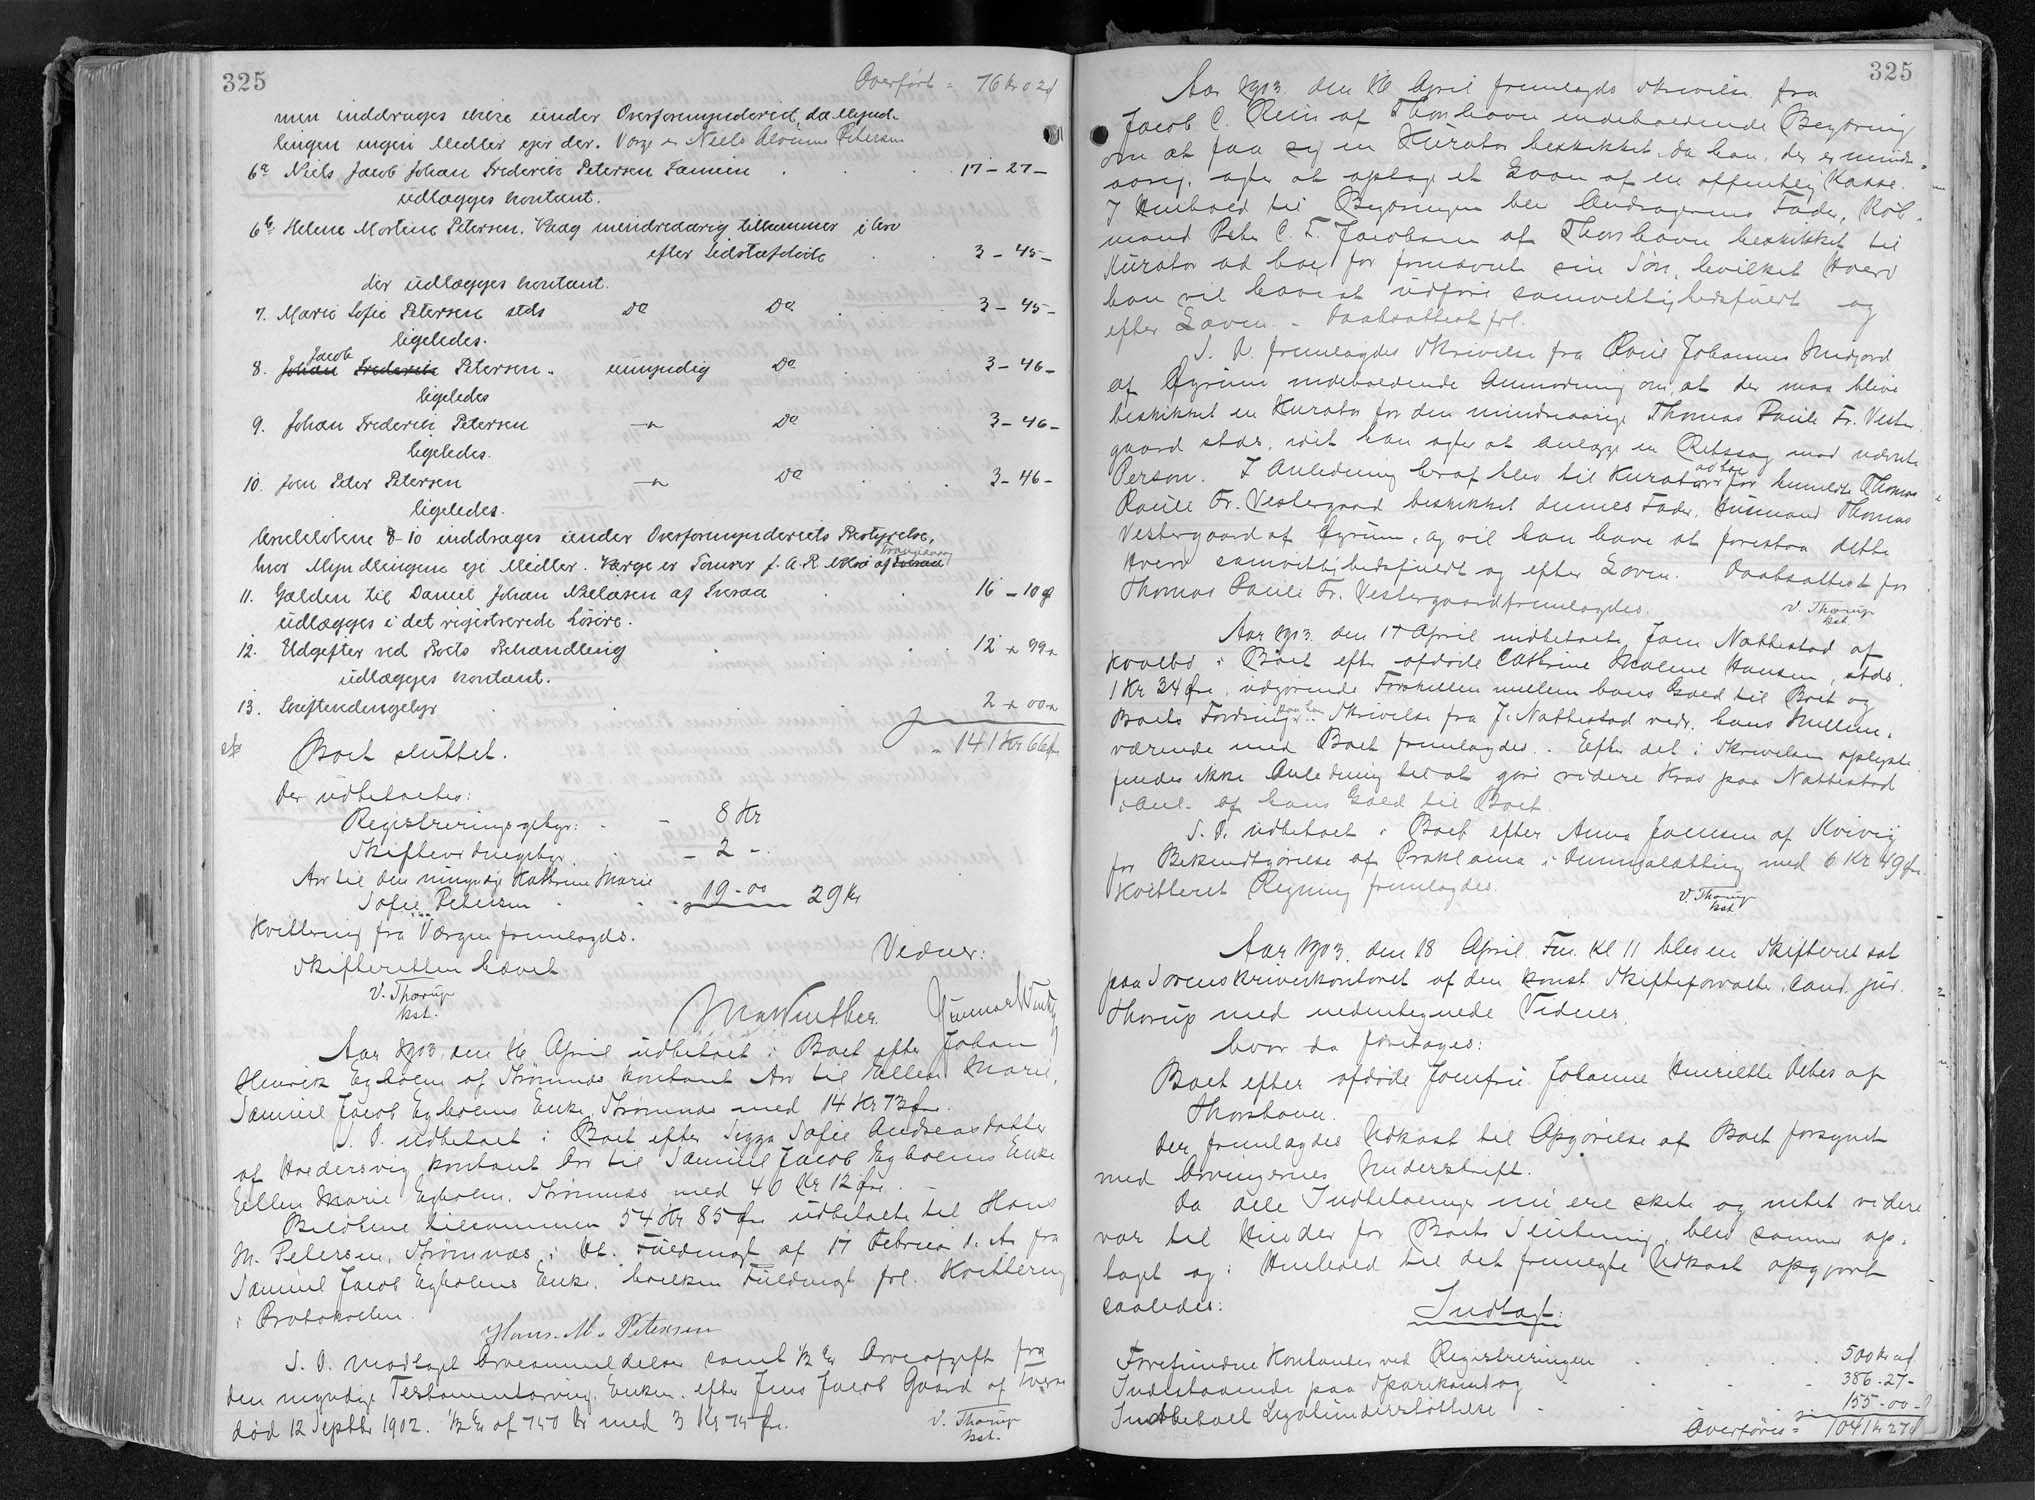 325
Overført = 76 Kr 02 Ø
men inddrages ikke under Overformynderiet, da Mynd-
lingen ingen Midler ejer der. Værge er Niels Petersen
6a Niels Jacob Johan Frederik Petersen Famien . . . 17 - 27 -
udlægges kontant.
6b Helene Mortine Petersen, Vaag mindreaarig tilkommer i Arv
efter Sidstafdøde . . 3 - 45 -
der udlægges kontant.
7. Marie Sofie Petersen stds Do Do . . . 3 - 45 -
ligeledes.
Jacob
8. Johan Frederik Petersen - umyndig Do . . . 3 - 46 -
ligeledes
9. Johan Frederik Petersen — Do . . . 3 - 46 -
ligeledes.
10. Joen Peter Petersen — Do . . . 3 - 46 -
ligeledes.
Arvelodene 8-10 inddrages under Overformynderiets Bestyrelse,
hvor Myndlingene eje Midler. Værge er Tømrer J. A. R. af
11. Gælden til Daniel Johan Nielasen af Tveraa . . 16 - 10 Ø
udlægges i det registrerede Løsøre.
12. Udgifter ved Boets Behandling . . . 12 - 99 -
udlægges kontant.
13. Skiftendengebyr . . . 2 - 00 -
= 141 Kr 66 Ø
Boet sluttet.
Der udbetaltes:
Registreringsgebyr: - - 8 Kr
Skifteendengebyr . . - 2 -
Arv til den umyndige Kathrine Marie
Sofie Petersen - . . 19 - 00 29 Kr
Kvittering fra Værgen fremlagdes.
Skifteretten hævet
Vidner:
V. Thorup
kst.
M Winther.
Aar 1903, den 16 April udbetalt i Boet efter Johan
Henrik Egholm af Strømnæs kontant Arv til Ellen Marie,
Samuel Jacob Egholms Enke Strømnæs med 14 Kr 73 Øre.
S. D. udbetalt i Boet efter Sigga Sofie Andreasdatter
af Haldersvig kontant Arv til Samuel Jacob Egholms Enke
Ellen Marie Egholm, Strømnæs med 40 Kr 12 Øre. -
Beløbene tilsammen 54 Kr 85 Øre udbetalte til Hans
M. Petersen, Strømnæs, i Flg. Fuldmagt af 17 Februar d. A. fra
Samuel Jacob Egholms Enke, hvilken Fuldmagt frl. Kvittering
i Protokollen.
Hans. M. Petersen
S. D. modtaget Arveanmeldelse samt ½ % Arveafgift fra
den myndige Testamentarving, Enken efter Jens Jacob Gaard af
død 12 Septbr 1902. ½ % af 750 Kr med 3 Kr 75 Øre.
V. Thorup
kst.
325
Aar 1903. den 16 April fremlagdes Skrivelse fra
Jacob C. Rein af Thorshavn indeholdende Begæring
om at faa sig en Kurator beskikket, da han, der er mindre-
aarig, agter at optage et Laan af en offentlig Kasse.
I Henhold til Begæringen blev Andragerens Fader, Køb-
mand Peter C. F. Jacobsen af Thorshavn beskikket til
Kurator ad hoc for fornævnte sin Søn, hvilket Hverv
han vil have at udføre samvittighedsfuldt og
efter Loven. - Daabsattest frl.
S. D. fremlagdes Skrivelse fra Poul Johannes Midjord
af Øyrum indeholdende Anmodning om at der maa blive
beskikket en Kurator for den mindreaarige Thomas Pauli Fr. Vester-
gaard stds., idet han agter at anlægge en Retssag mod nævnte
Person. I Anledning heraf blev til Kurator ad hoc for Thomas
Pauli Fr. Vestergaard beskikket dennes Fader, Husmand Thomas
Vestergaard af Øyrum, og vil han have at forestaa dette
Hverv samvittighedsfuldt og efter Loven. Daabsattest for
Thomas Pauli Fr. Vestergaard fremlagdes.
V. Thorup
kst.
Aar 1903. den 17 April indbetalte Joen Nattestad af
Kvalbø i Boet efter afdøde Cathrine Malene Hansen, stds.
1 Kr 34 Øre, udgørende Forskellen mellem hans Gæld til Boet og
Boets Fordring paa ham. Skrivelse fra J. Nattestad vedr. hans Mellem-
værende med Boet fremlagdes. Efter det i Skrivelsen oplyste
findes ikke Anledning til at gøre videre Krav paa Nattestad
i Anl. af hans Gæld til Boet.
S. D. udbetalt i Boet efter Anna Joensen af Kvivig
for Bekendtgørelse af Proklama i Dimmalætting med 6 Kr 49 Øre
Kvitteret Regning fremlagdes.
V. Thorup
kst.
Aar 1903. den 18 April Fm. Kl 11 blev en Skifteret sat
paa Sorenskriverkontoret af den konst. Skifteforvalter, cand. jur.
Thorup med undertegnede Vidner,
hvor da foretoges:
Boet efter afdøde Jomfru Johanne Henriette Debes af
Thorshavn.
Der fremlagdes Udkast til Opgørelse af Boet forsynet
med Arvingernes Underskrift.
Da alle Indbetalinger nu ere skete og intet videre
var til Hinder for Boets Slutning, blev samme op-
taget og i Henhold til det fremlagte Udkast opgjort
saaledes:
Indtægt:
Forefundne Kontanter ved Registreringen . . . 500 Kr Ø
Indestaaende paa Sparekassebog - . . 386 - 27 -
Indbetalt Legatunderstøttelse - . . 155 - 00 -
Overføres = 1041 Kr 27 Ø